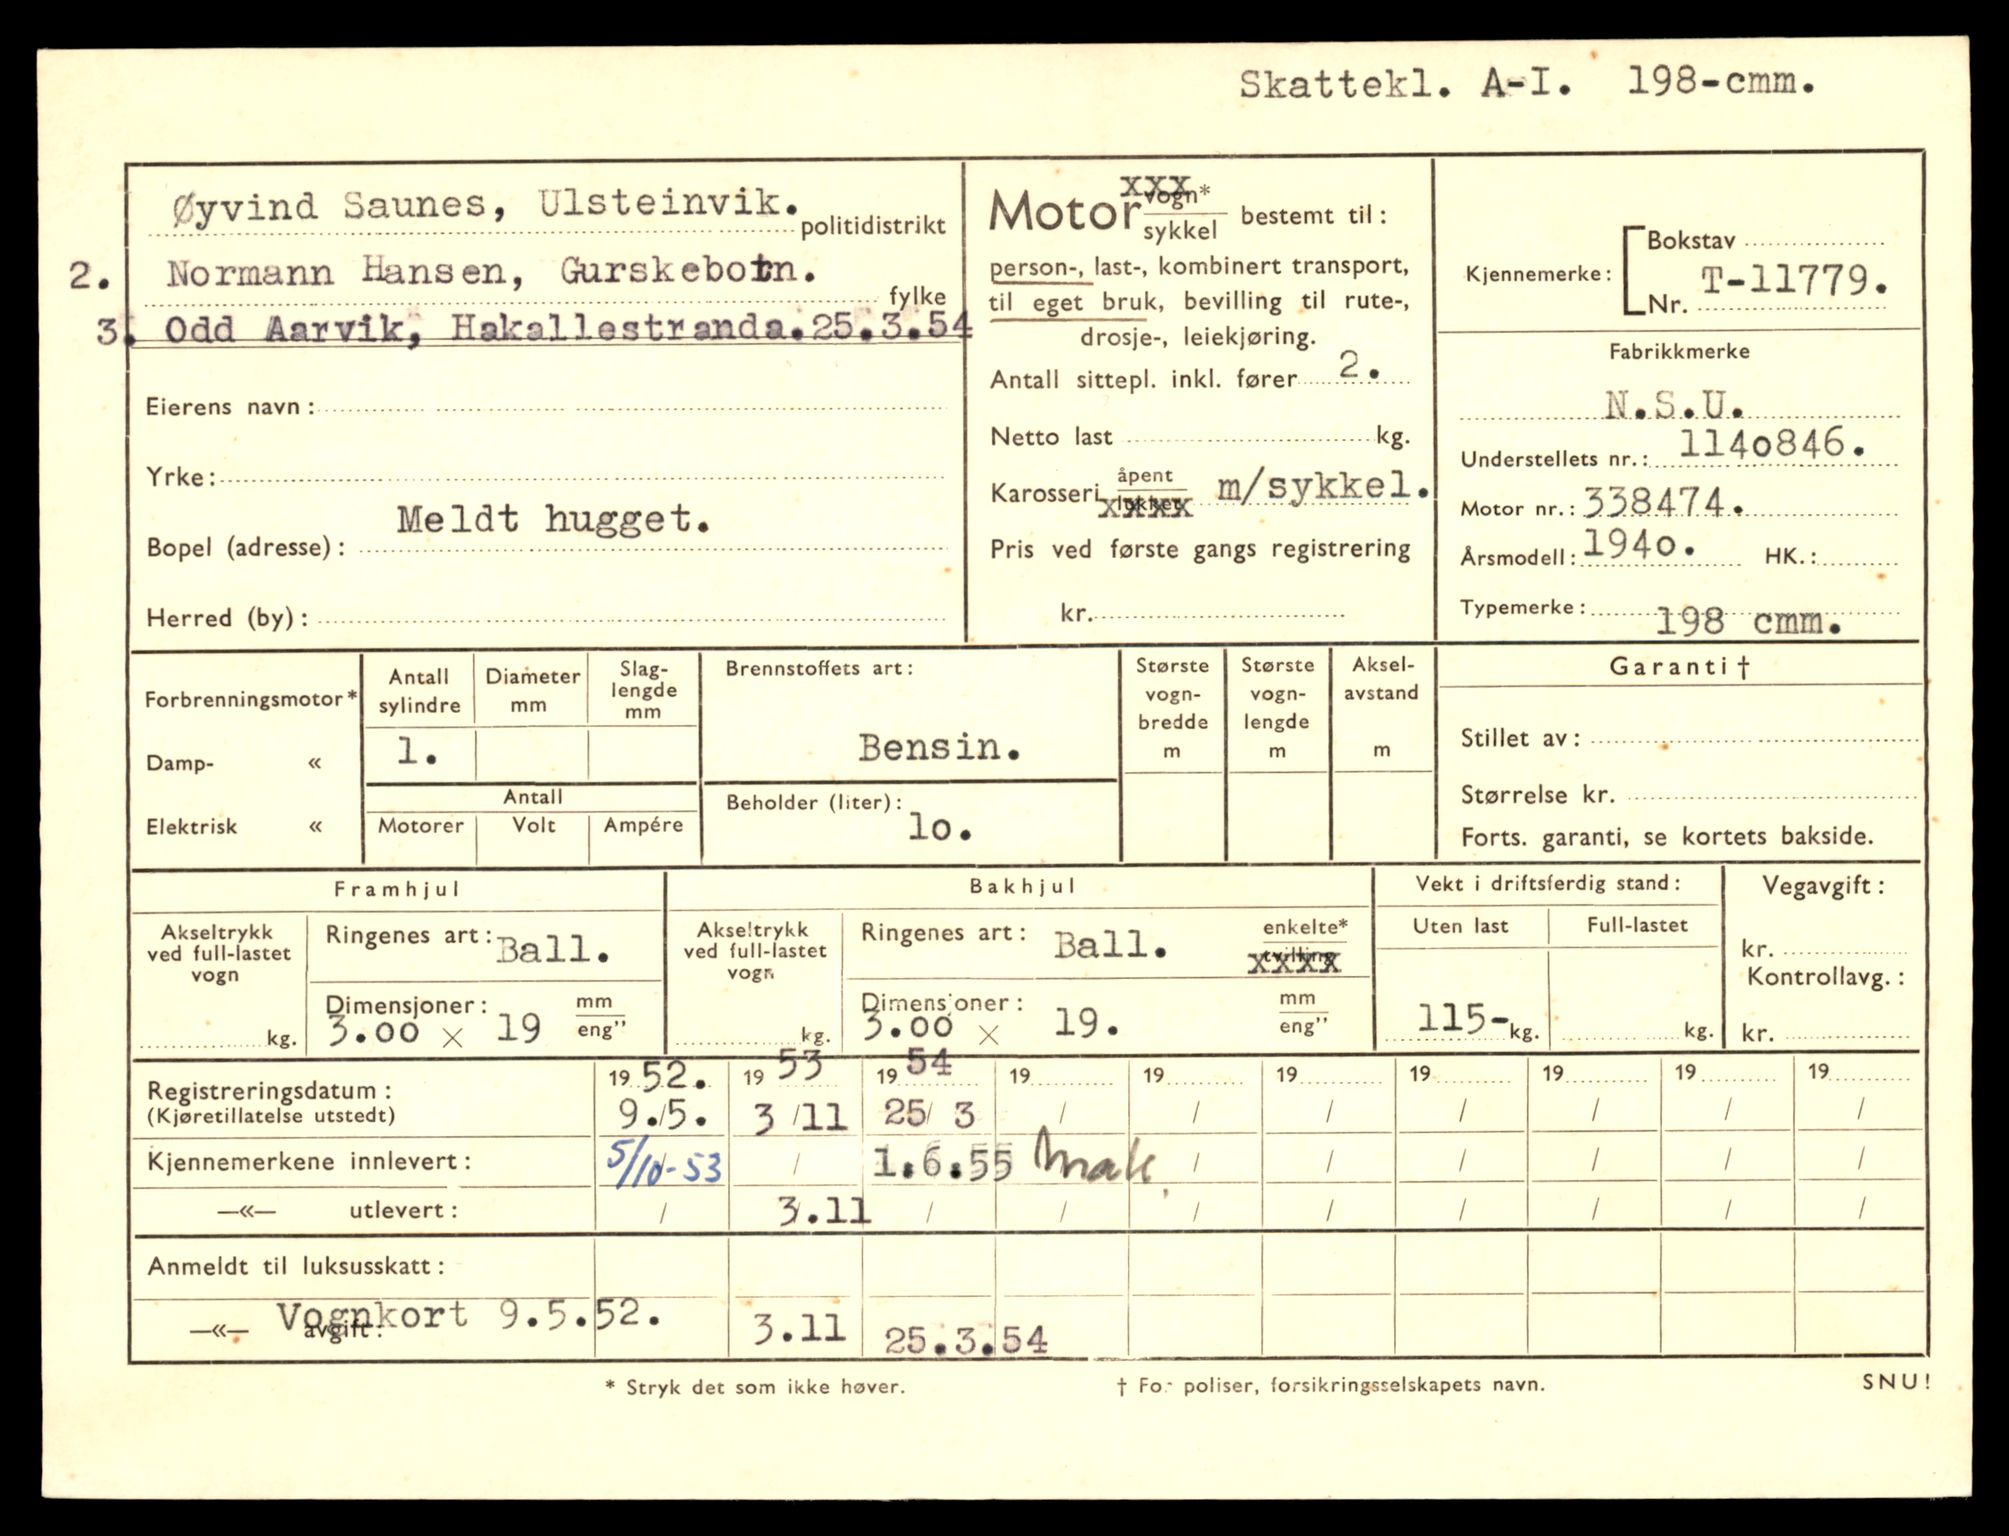 Skattekl. A-I. 198-cmm.
Øyvind Saunes, Ulsteinvik.
politidistrikt
2. Normann Hansen, Gurskebotn.
fylke
3. Odd Aarvik, Hakallestranda.25.3.54
Eierens navn:
Yrke:
Meldt hugget.
Bopel (adresse):
Herred (by):
Motor vogn* / sykkel bestemt til:
xxx
person-, last-, kombinert transport,
til eget bruk, bevilling til rute-,
drosje-, leiekjøring.
Antall sittepl. inkl. fører 2.
Netto last kg.
Karosseri åpent / lukket m/sykkel.
xxxx
Pris ved første gangs registrering
kr.
Kjennemerke: Bokstav
T-11779.
Nr.
Fabrikkmerke
N.S.U.
Understellets nr.: 1140846.
Motor nr.: 338474.
Årsmodell: 1940. HK.:
Typemerke: 198 cmm.
Forbrenningsmotor*
Damp- «
Elektrisk «
Antall sylindre
Diameter mm
Slag-lengde mm
1.
Antall
Motorer Volt Ampére
Brennstoffets art:
Bensin.
Beholder (liter):
10.
Største vogn-bredde m
Største vogn-lengde m
Aksel-avstand m
Garanti †
Stillet av:
Størrelse kr.
Forts. garanti, se kortets bakside.
Framhjul
Akseltrykk ved full-lastet vogn
kg.
Ringenes art: Ball.
Dimensjoner: mm
3.00 × 19 eng"
Bakhjul
Akseltrykk ved full-lastet vogn
kg.
Ringenes art: Ball. enkelte* / tvilling
xxxx
Dimensjoner: mm
3.00 × 19. eng"
Vekt i driftsferdig stand:
Uten last Full-lastet
115- kg. kg.
Vegavgift:
kr.
Kontrollavg.:
kr.
Registreringsdatum: 19 52. 19 53 19 54 19 19 19 19 19 19 19
(Kjøretillatelse utstedt) 9./5. 3/11 25/3 / / / / / / /
Kjennemerkene innlevert: 5/10-53 / 1.6.55 / / / / / /
—«— utlevert: / 3.11 / / / / / / / /
Anmeldt til luksusskatt:
—«— avgift: Vognkort 9.5.52. 3.11 25.3.54
* Stryk det som ikke høver.
† For poliser, forsikringsselskapets navn.
SNU!